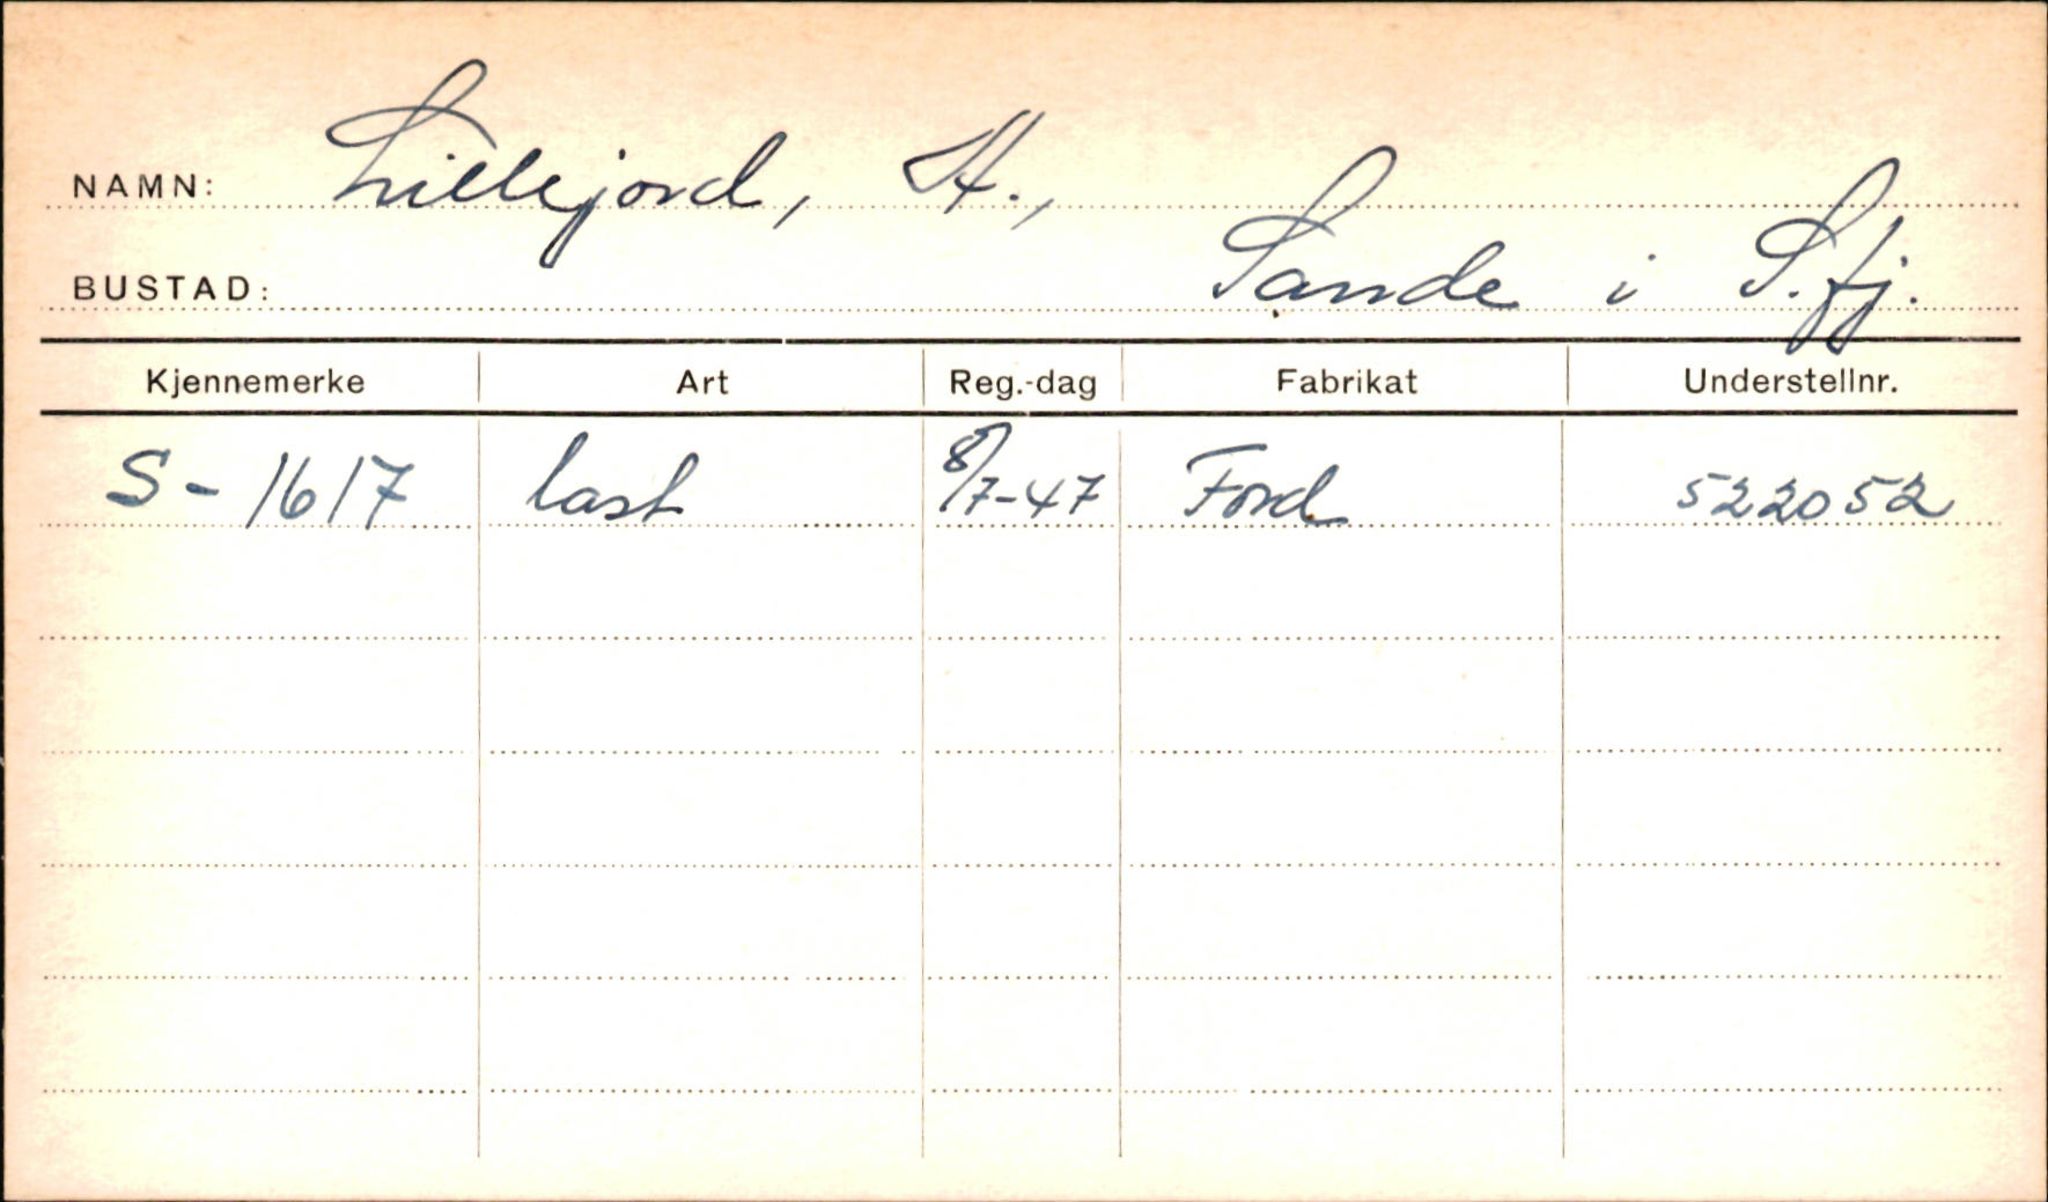 NAMN: Lillejord, H.,
BUSTAD: Sande i S.fj.
Kjennemerke Art Reg.-dag Fabrikat Understellnr.
S-1617 last 8/7-47 Ford 522052